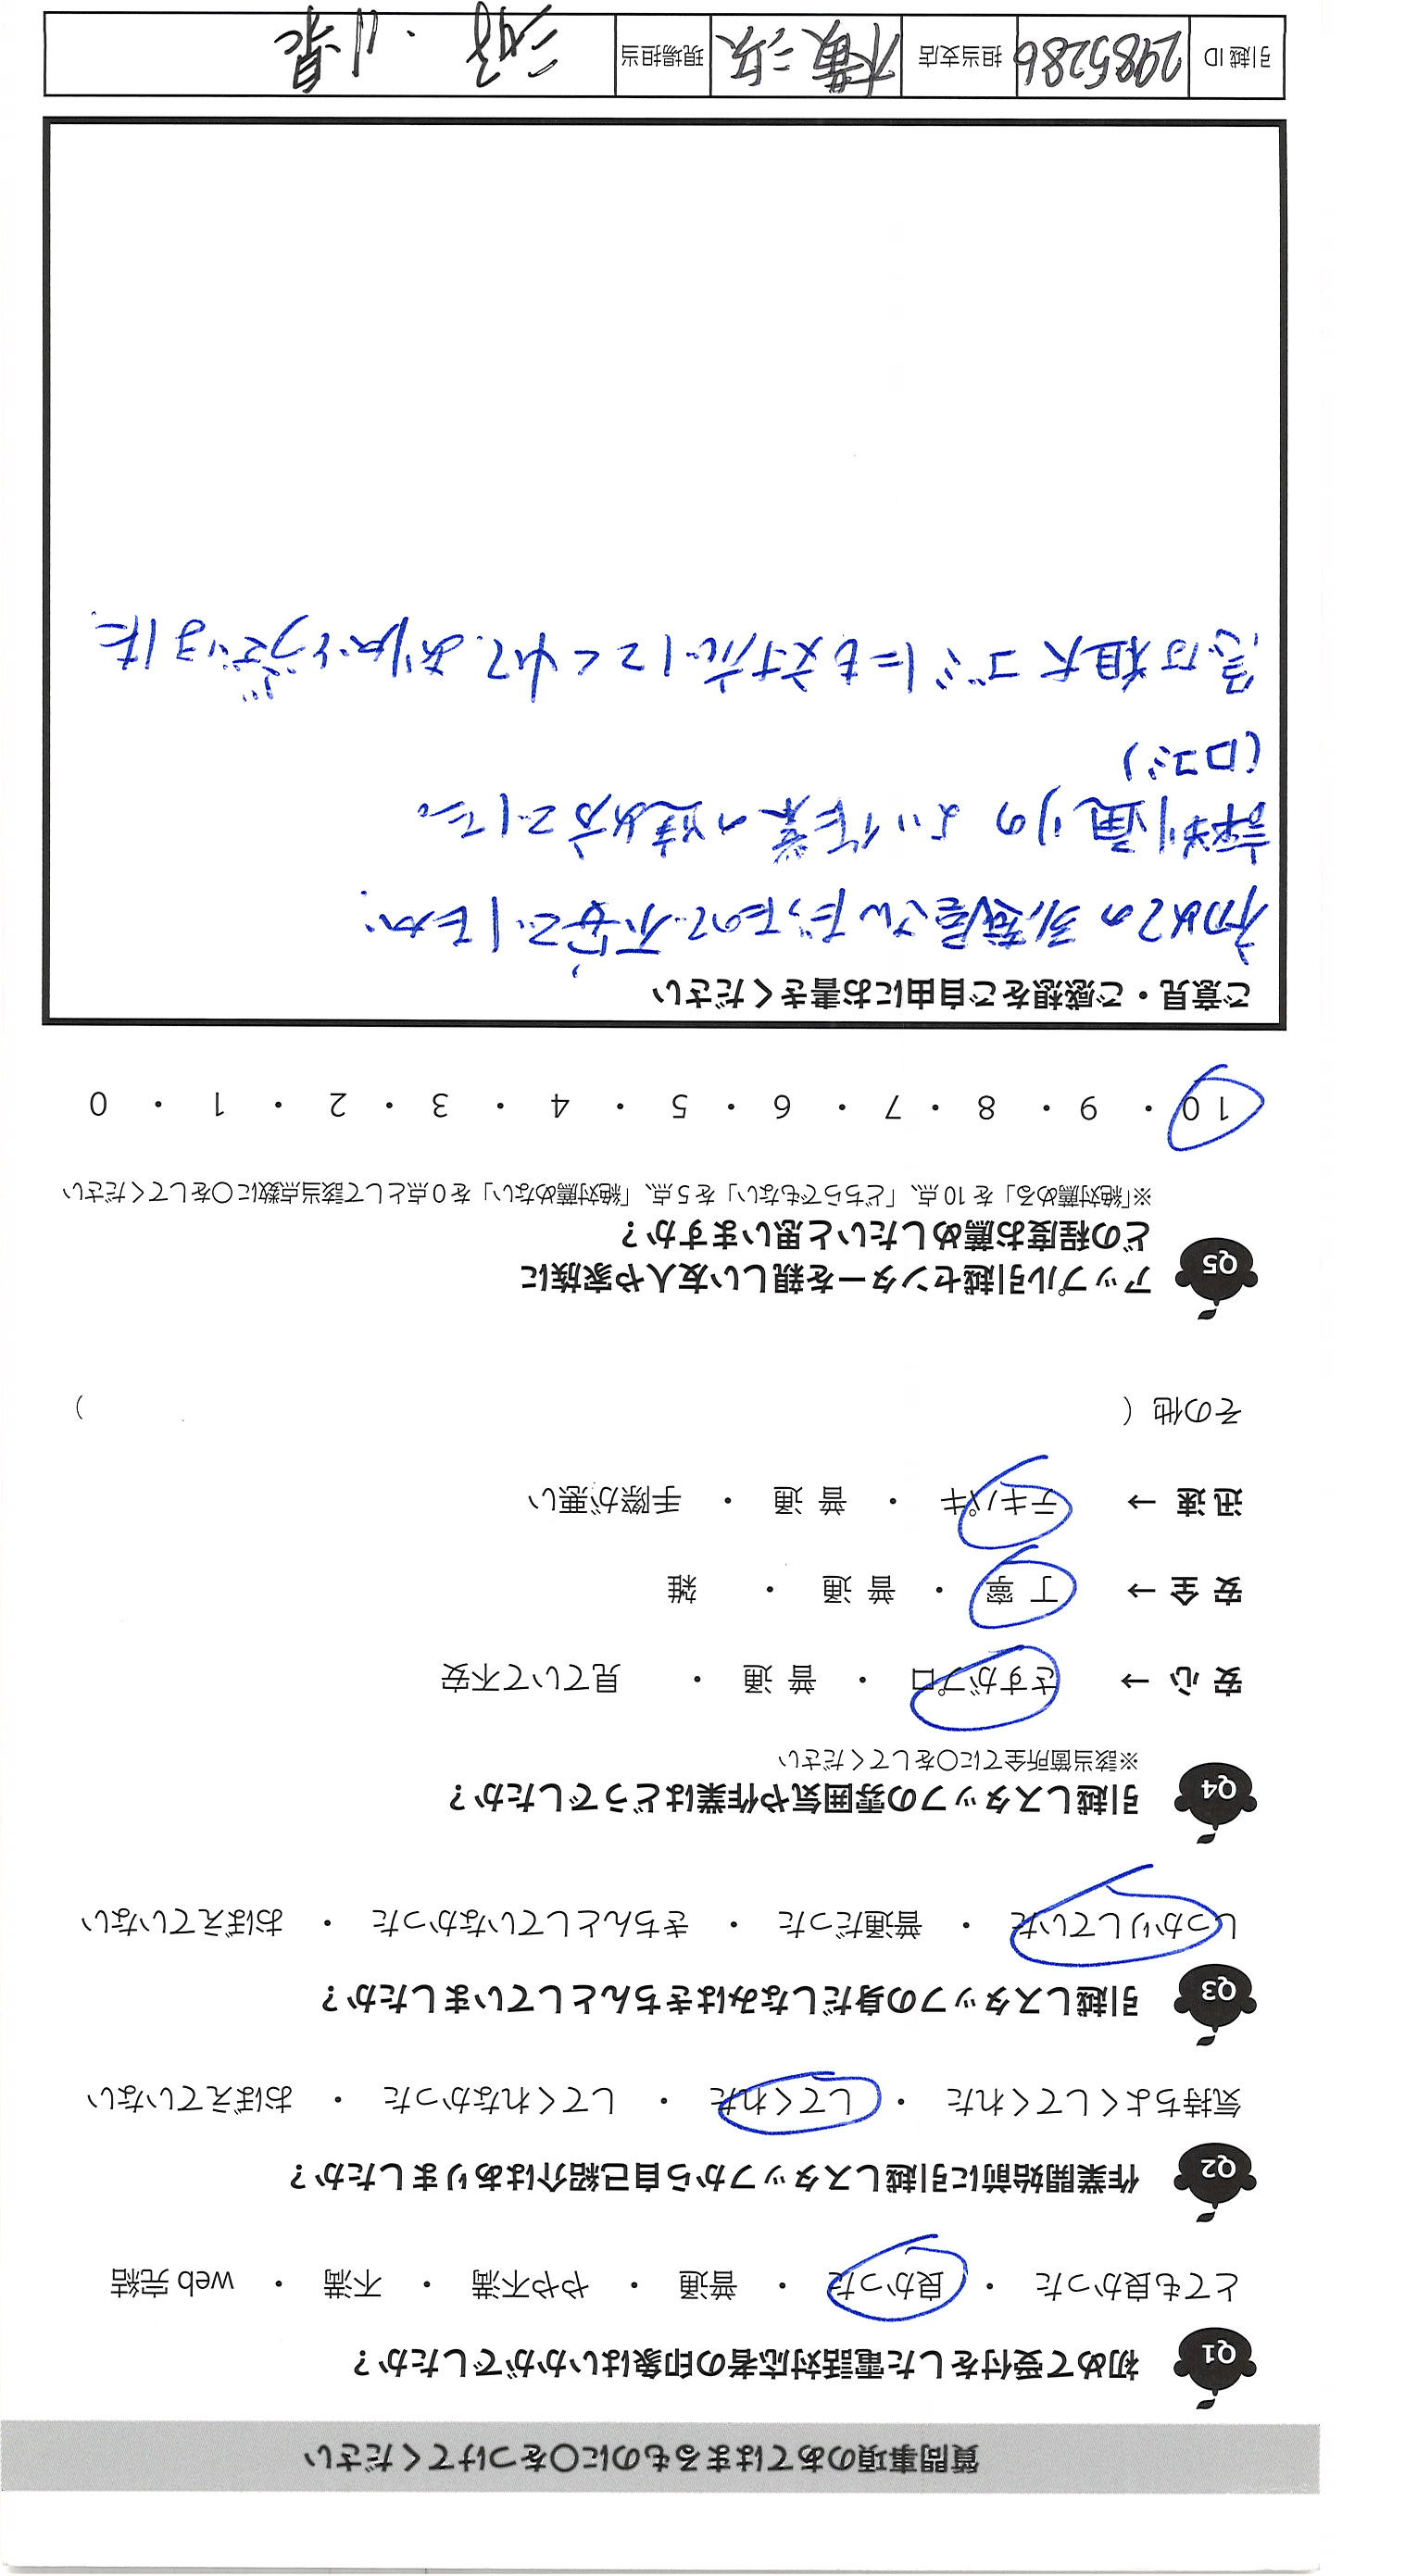 質問事項のあてはまるものに〇をつけてください
Q1 初めて受付をした電話対応者の印象はいかがでしたか？
とても良かった ・ 良かった ・ 普通 ・ やや不満 ・ 不満 ・ web 完結
Q2 作業開始前に引越しスタッフから自己紹介はありましたか？
気持ちよくしてくれた ・ してくれた ・ してくれなかった ・ おぼえていない
Q3 引越しスタッフの身だしなみはきちんとしていましたか？
しっかりしていた ・ 普通だった ・ きちんとしていなかった ・ おぼえていない
Q4 引越しスタッフの雰囲気や作業はどうでしたか？
※該当箇所全てに〇をしてください
安 心 → さすがプロ ・ 普 通 ・ 見ていて不安
安 全 → 丁 寧 ・ 普 通 ・ 雑
迅 速 → テキパキ ・ 普 通 ・ 手際が悪い
その他（ ）
Q5 アップル引越センターを親しい友人や家族に
どの程度お薦めしたいと思いますか？
※「絶対薦める」を 10 点、「どちらでもない」を 5 点、「絶対薦めない」を 0 点として該当点数に〇をしてください
10 ・ 9 ・ 8 ・ 7 ・ 6 ・ 5 ・ 4 ・ 3 ・ 2 ・ 1 ・ 0
ご意見・ご感想をご自由にお書きください
初めての引越屋さんだったので不安でしたが、
評判通りのよい作業の進め方でした。
(口コミ)
急な粗大ゴミにも対応してくれて、ありがとうございました.
引越 ID 2985286 担当支店 横浜 現場担当 三好 ・ 小泉